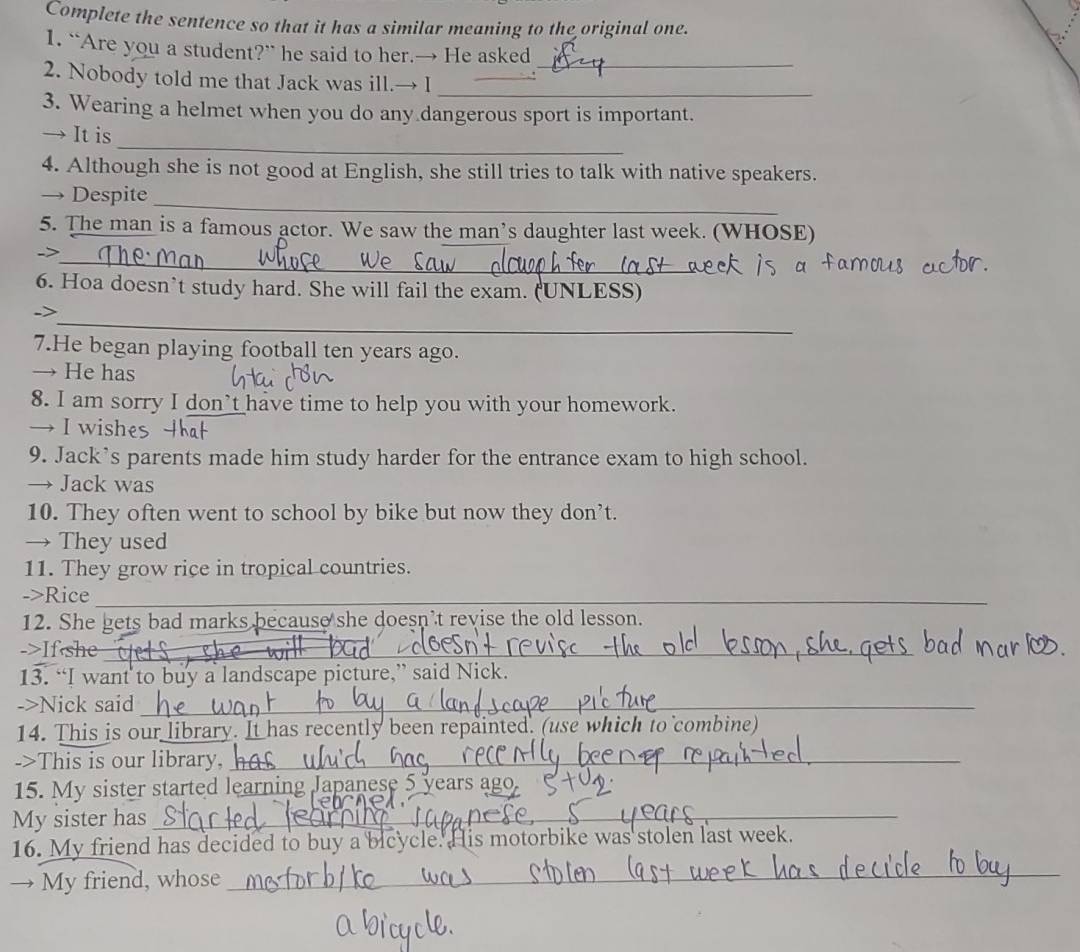 Complete the sentence so that it has a similar meaning to the original one.
1. “Are you a student?” he said to her.→ He asked
2. Nobody told me that Jack was ill.→ I
3. Wearing a helmet when you do any dangerous sport is important.
→ It is
4. Although she is not good at English, she still tries to talk with native speakers.
→ Despite
5. The man is a famous actor. We saw the man’s daughter last week. (WHOSE)
-> The man whose we saw daughter last week is a famous actor.
6. Hoa doesn’t study hard. She will fail the exam. (UNLESS)
->
7.He began playing football ten years ago.
→ He has
8. I am sorry I don’t have time to help you with your homework.
→ I wishes that
9. Jack’s parents made him study harder for the entrance exam to high school.
→ Jack was
10. They often went to school by bike but now they don’t.
→ They used
11. They grow rice in tropical countries.
->Rice
12. She gets bad marks because she doesn’t revise the old lesson.
->If she gets, she will bad doesn't revise the old lesson, she gets bad
13. “I want to buy a landscape picture,” said Nick.
->Nick said he want to by a landscape picture
14. This is our library. It has recently been repainted. (use which to combine)
->This is our library, has which has recently been repainted.
15. My sister started learning Japanese 5 years ago.
learned.
My sister has started learning japanese 5 years.
16. My friend has decided to buy a bicycle. His motorbike was stolen last week.
→ My friend, whose motorbike was stolen last week has decide to buy
a bicycle.